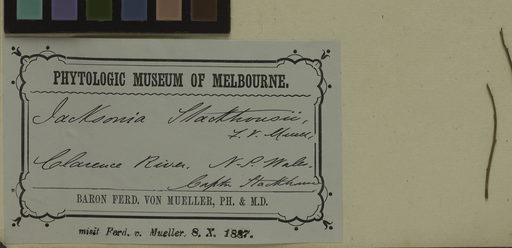 PHYTOLOGIC MUSEUM OF MELBOURNE.
Jacksonia Stackhousii,
F. v. Muell,
Clarence River. N. S. Wales.
Captn Stackhouse
BARON FERD. VON MUELLER, PH. & M.D.
misit Ferd. v. Mueller. 8. X. 1887.